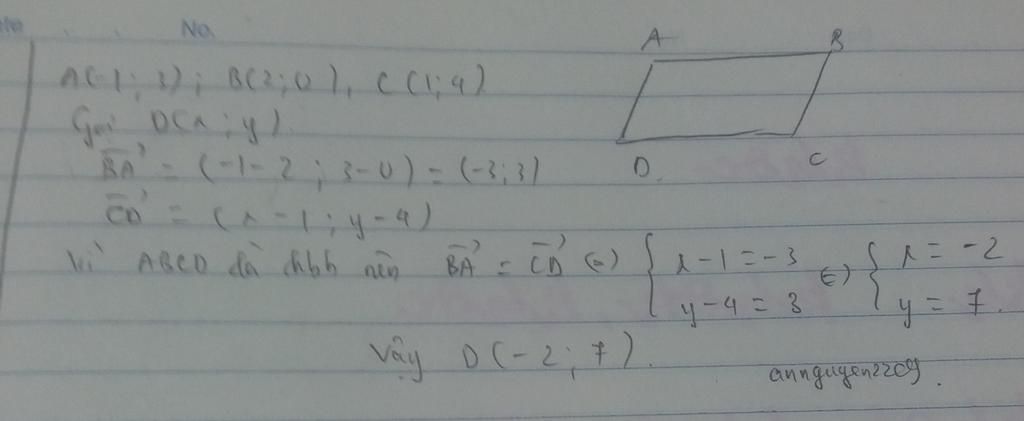 No.
A(-1; 3); B(2; 0), C(1; 4)
Gọi D(x; y).
BA→ = (-1-2; 3-0) = (-3; 3)
CD→ = (x-1; y-4)
Vì ABCD là hbh nên BA→ = CD→ (=) { x-1 = -3 (=) { x = -2
y-4 = 3 y = 7.
Vậy D(-2; 7).
annguyen2209.
A B
D. C